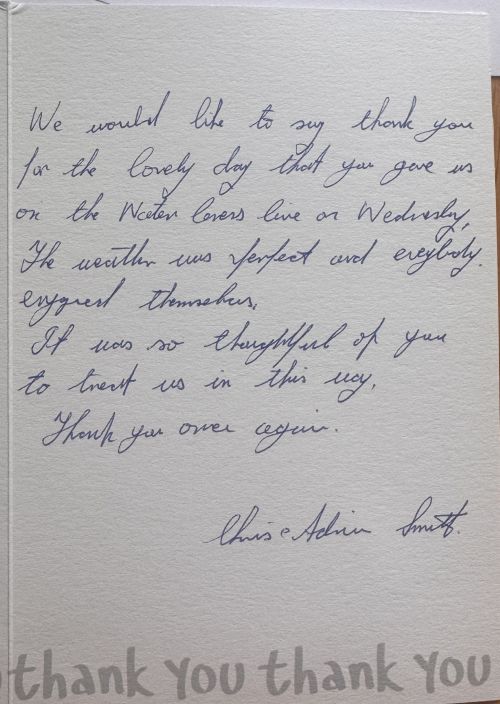 We would like to say thank you
for the lovely day that you gave us
on the Water lovers live on Wednesday,
The weather was perfect and everybody
enjoyed themselves,
It was so thoughtful of you
to treat us in this way,
Thank you once again.
Chris & Adrian Smith.
thank you thank you